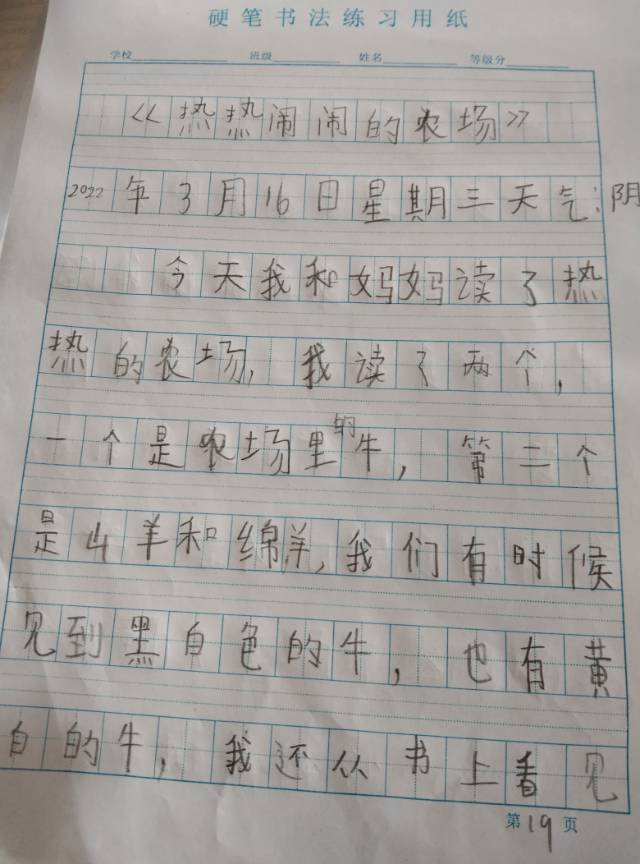 硬笔书法练习用纸
学校 班级 姓名 等级分
《热热闹闹的农场》
2022年3月16日星期三天气:阴
今天我和妈妈读了热
热的农场,我读了两个,
一个是农场里的牛,第二个
是山羊和绵羊,我们有时候
见到黑白色的牛,也有黄
白的牛,我还从书上看见
第19页